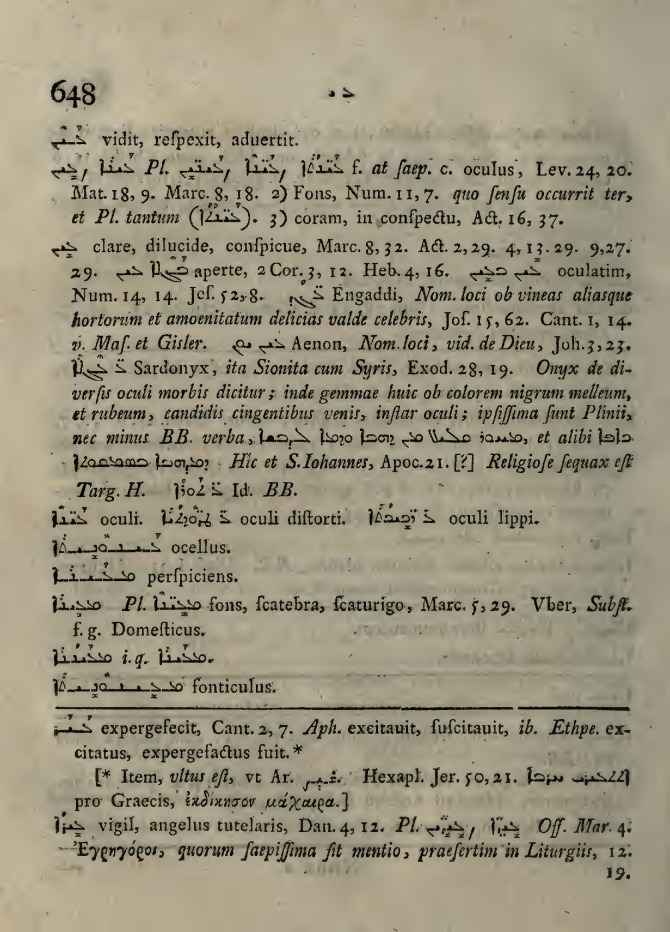 648
ܥ ܝ
ܥܝܢ vidit, reſpexit, aduertit.
Pl. f. at ſaep. c. oculus, Lev. 24, 20.
Mat. 18, 9. Marc. 8, 18. 2) Fons, Num. 11, 7. quo ſenſu occurrit ter,
et Pl. tantum (ܥܝܢܬܐ). 3) coram, in conſpectu, Act. 16, 37.
clare, dilucide, conſpicue, Marc. 8, 32. Act. 2, 29. 4, 13. 29. 9, 27.
29. aperte, 2 Cor. 3, 12. Heb. 4, 16. oculatim,
Num. 14, 14. Jeſ. 52, 8. Engaddi, Nom. loci ob vineas aliasque
hortorum et amoenitatum delicias valde celebris, Joſ. 15, 62. Cant. 1, 14.
v. Maſ. et Gisler. Aenon, Nom. loci, vid. de Dieu, Joh. 3, 23.
Sardonyx, ita Sionita cum Syris, Exod. 28, 19. Onyx de di-
verſis oculi morbis dicitur; inde gemmae huic ob colorem nigrum melleum,
et rubeum, candidis cingentibus venis, inſtar oculi; ipſiſſima ſunt Plinii,
nec minus BB. verba, et alibi
Hic et S. Iohannes, Apoc. 21. [?] Religioſe ſequax eſt
Targ. H. Id. BB.
oculi. oculi diſtorti. oculi lippi.
ocellus.
perſpiciens.
Pl. fons, ſcatebra, ſcaturigo, Marc. 5, 29. Vber, Subſt.
f. g. Domeſticus.
i. q.
fonticulus.
expergefecit, Cant. 2, 7. Aph. excitauit, ſuſcitauit, ib. Ethpe. ex-
citatus, expergefactus fuit. *
[* Item, vltus eſt, vt Ar. Hexapl. Jer. 50, 21.
pro Graecis, ἐκδίκησον μάχαιρα.]
vigil, angelus tutelaris, Dan. 4, 12. Pl. Off. Mar. 4.
Ἐγρηγόροι, quorum ſaepiſſima fit mentio, praeſertim in Liturgiis, 12.
19.